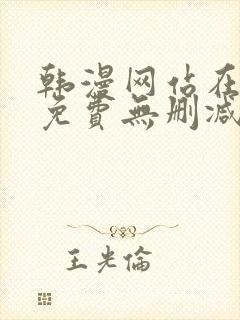 韩漫网站在
免費無删减
王光倫